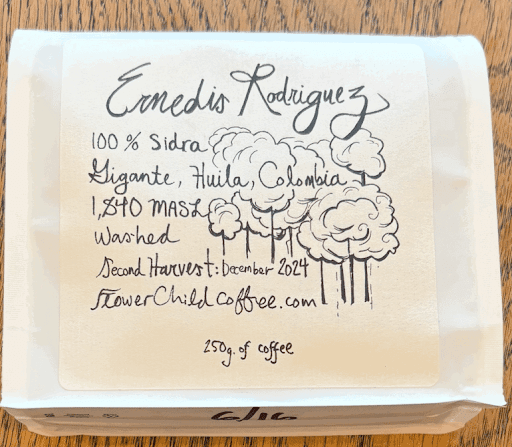 Ernedis Rodriguez
100 % Sidra
Gigante, Huila, Colombia
1,840 MASL
Washed
Second Harvest: December 2024
FlowerChildCoffee.com
250g. of coffee
6/16